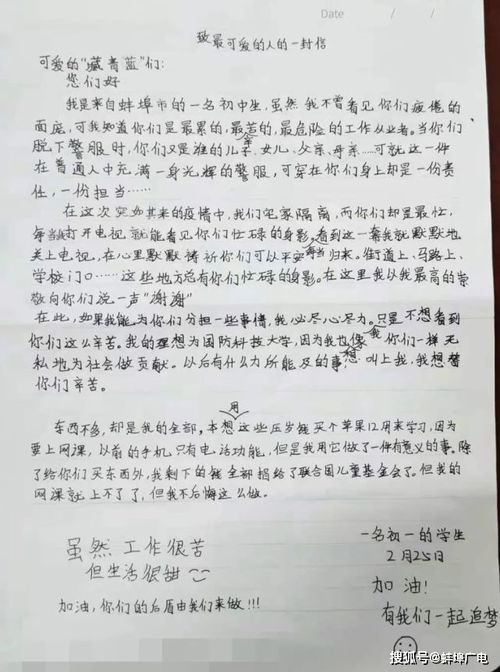 Date / /
致最可爱的人的一封信
可爱的"藏青蓝"们:
您们好
我是来自蚌埠市的一名初中生,虽然我不曾看见你们疲倦的
面庞,可我知道你们是最累的,最苦的,最危险的工作从业者。当你们
脱下警服时,你们又是谁的儿子、女儿、父亲、母亲……可就这一件
在普通人中充满一身光辉的警服,可穿在你们身上却是一份责
任,一份担当……
在这次突如其来的疫情中,我们宅家隔离,而你们却是最忙,
每当我打开电视就能看见你们忙碌的身影,看到这一幕我就默默地
关上电视,在心里默默祷祈你们可以平安归来。街道上、马路上、
学校门口……这些地方总有你们忙碌的身影。在这里我以我最高的崇
敬向你们说一声"谢谢"
在此,如果我能为你们分担一些事情,我必尽心尽力。只是不想看到
你们这么辛苦。我的理想为国防科技大学,因为我也想像你们一样无
私地为社会做贡献。以后有什么力所能及的事,叫上我,我想替
你们辛苦。
东西不多,却是我的全部。本想用这些压岁钱买个苹果12用来学习,因为
要上网课,以前的手机只有电话功能,但是我用它做了一件有意义的事。除
了给你们买东西外,我剩下的钱全部捐给了联合国儿童基金会了。但我的
网课就上不了了,但我不后悔这么做。
虽然工作很苦
但生活很甜
加油,你们的后盾由我们来做!!!
一名初一的学生
2月25日
加油!
有我们一起追梦
搜狐号@蚌埠广电